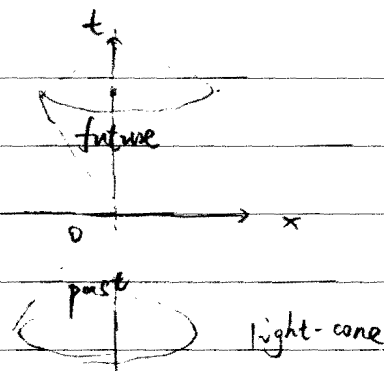 t
future
0
x
past
light-cone